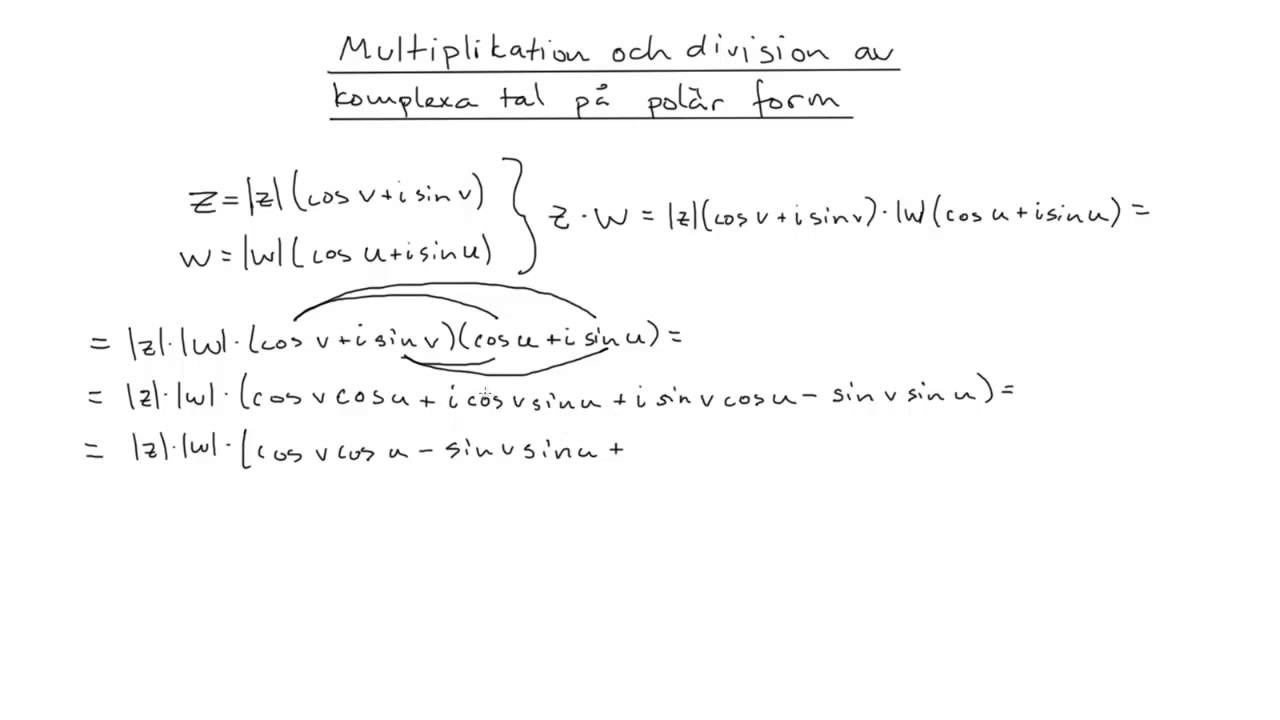 Multiplikation och division av
komplexa tal på polär form
z = |z| (cos v + i sin v)
w = |w| (cos u + i sin u)
} z · w = |z|(cos v + i sin v) · |w(cos u + i sin u) =
= |z| · |w| · (cos v + i sin v)(cos u + i sin u) =
= |z| · |w| · (cos v cos u + i cos v sin u + i sin v cos u - sin v sin u) =
= |z| · |w| · [cos v cos u - sin v sin u +